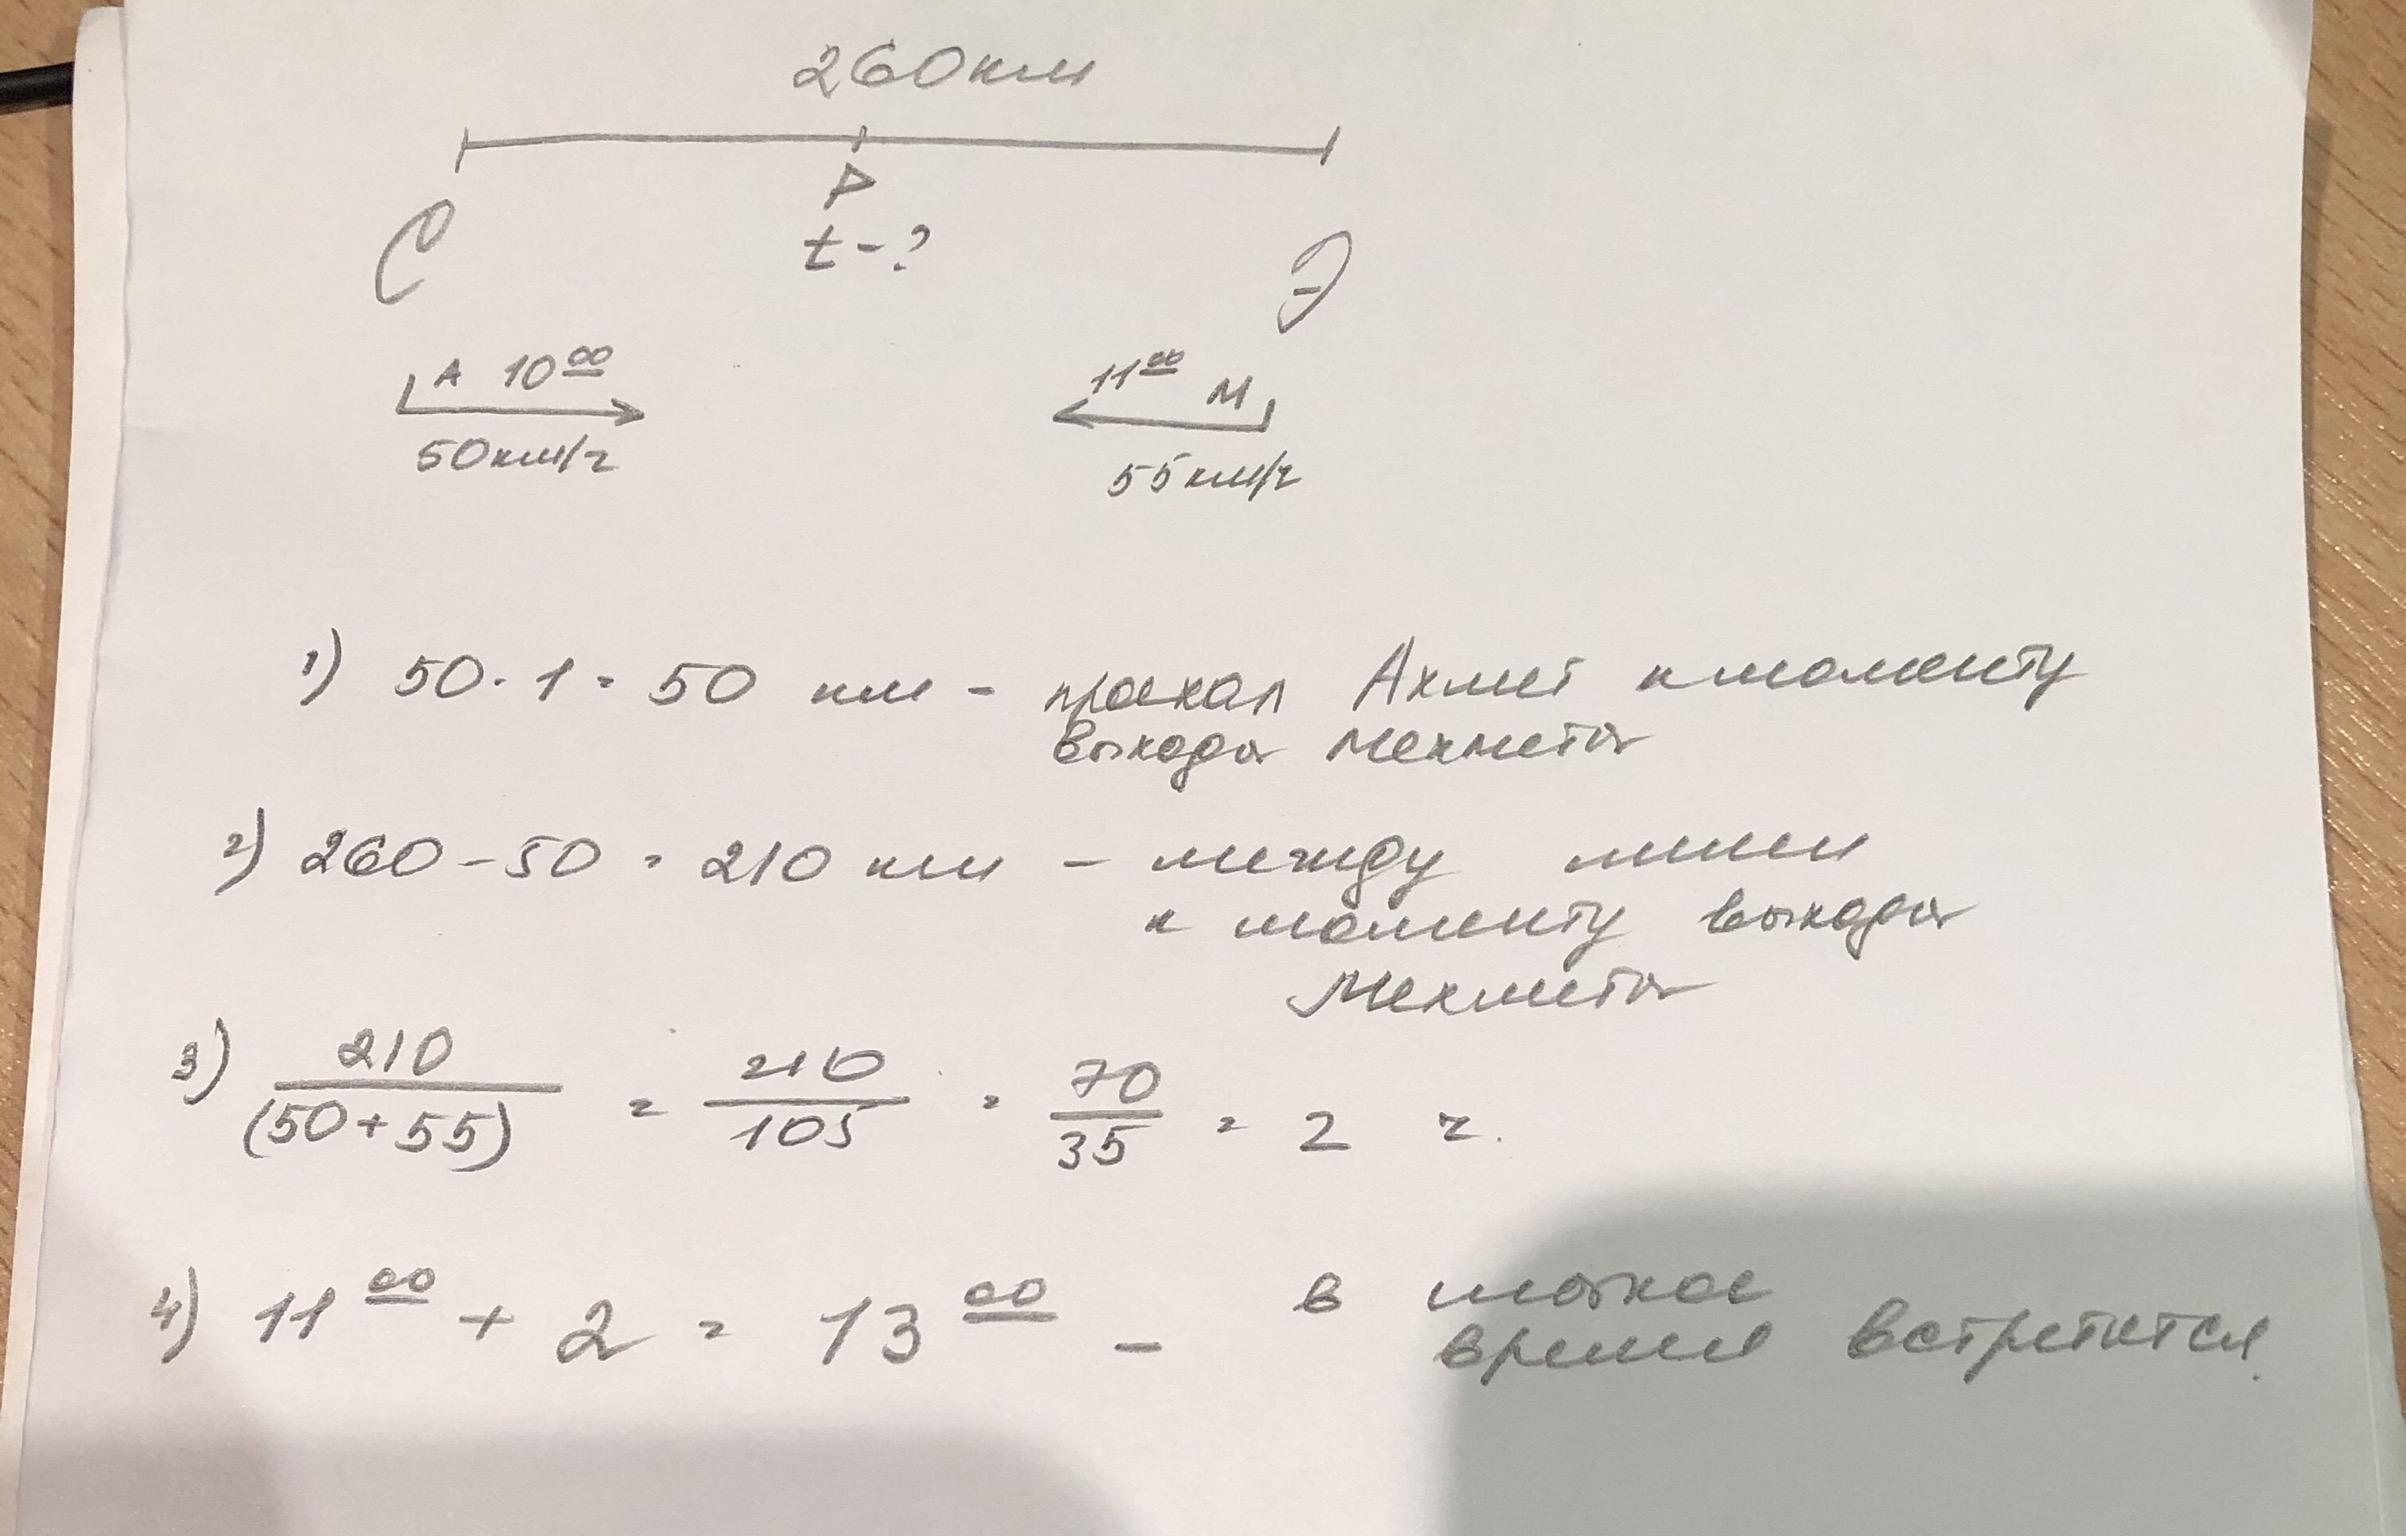 260км
P
t-?
С
Э
А 10 00
50км/ч
11 00 М
55км/ч
1) 50 · 1 = 50 км - проехал Ахмет к моменту
выхода Мехмета
2) 260 - 50 = 210 км - между ними
к моменту выхода
Мехмета
3) 210/(50+55) = 210/105 = 70/35 = 2 ч.
4) 11 00 + 2 = 13 00 - в такое
время встретится.